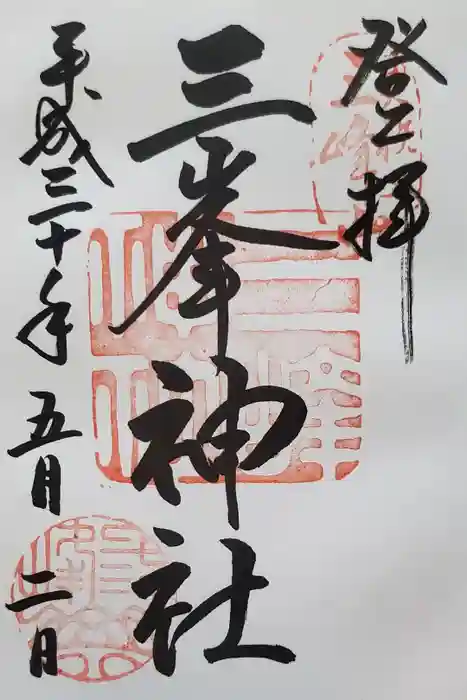 登拝
三峯神社
平成三十年五月二日